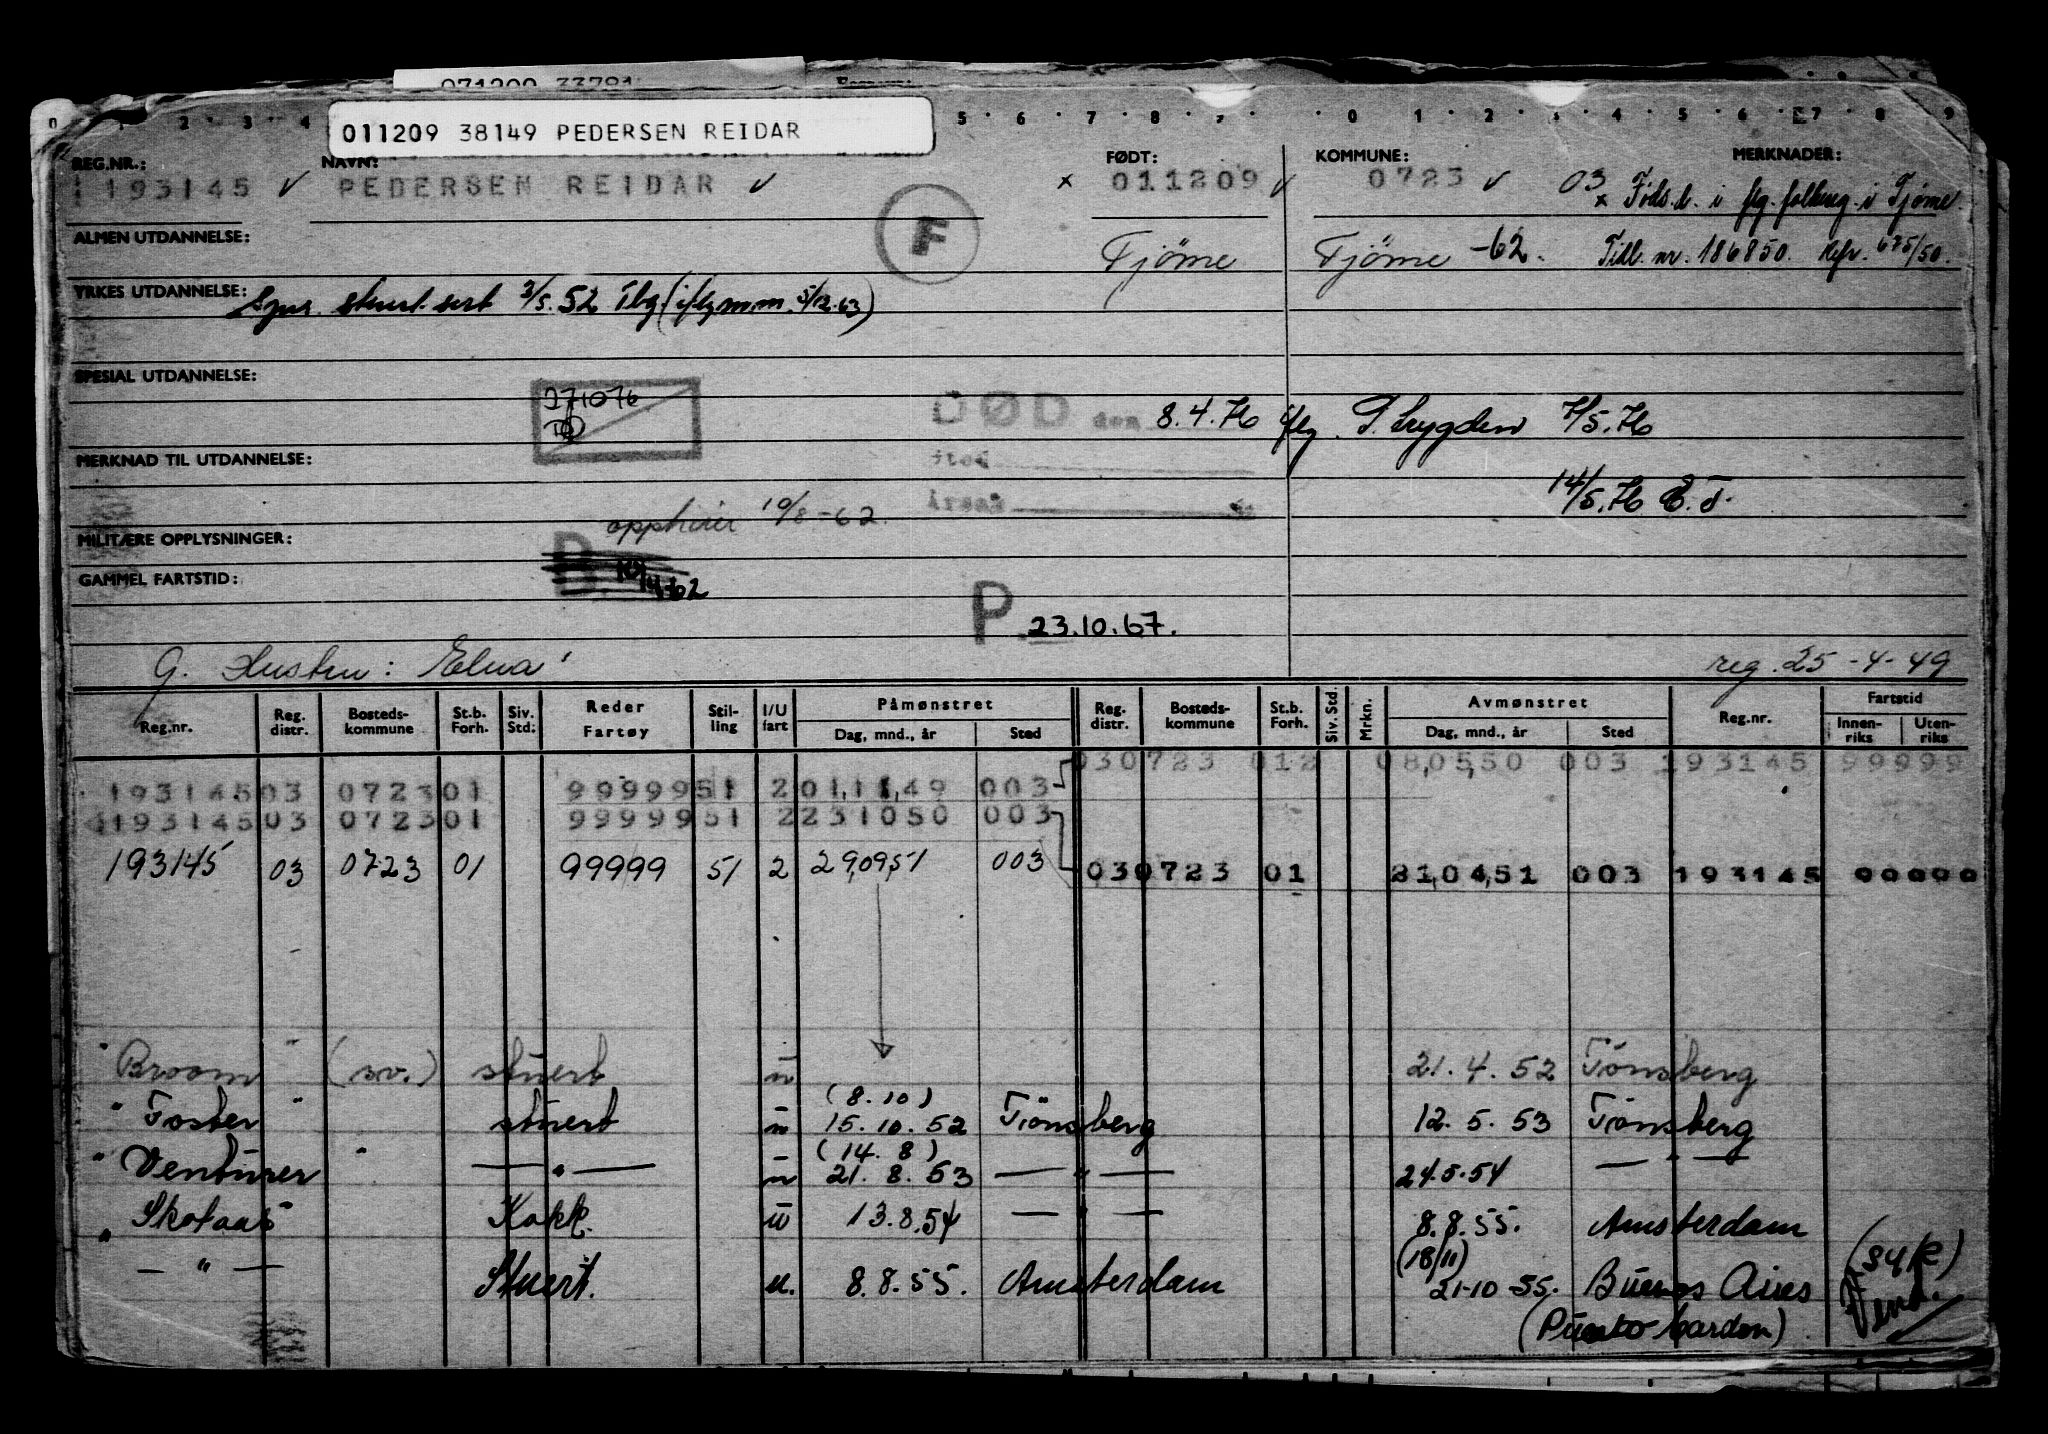 011209 38149 PEDERSEN REIDAR
REG.NR.: NAVN: FØDT: KOMMUNE: MERKNADER:
193145 PEDERSEN REIDAR x 011209 0723 03
x Föds.d. i flg. folkereg. i Tjøme.
ALMEN UTDANNELSE: F Tjöme Tjöme -62. Tidl. nr. 186850. Refr. 675/50.
YRKES UTDANNELSE: stuert sert 3/5.52 Tbg (iflg m.m. 5/12.63)
SPESIAL UTDANNELSE:
271076
DØD den 8.4.76 iflg. T. trygden 7/5.76
MERKNAD TIL UTDANNELSE: Sted
14/5.76
Årsak
opphører 10/8-62.
MILITÆRE OPPLYSNINGER:
GAMMEL FARTSTID:
P 23.10.67.
G. Hustru: Elna reg. 25-4-49
Reg.nr. Reg. distr. Bosteds-kommune St.b. Forh. Siv. Std: Reder Fartøy Stil-ling I/U fart Påmønstret Dag, mnd., år Sted Reg. distr. Bosteds-kommune St.b. Forh. Siv. Std. Mrkn. Avmønstret Dag, mnd., år Sted Reg.nr. Fartstid Innen-riks Uten-riks
030723 012 080550 003 193145 99999
193145 03 0723 01 99999 51 2 011149 003
193145 03 0723 01 99999 51 2 231050 003
193145 03 0723 01 99999 51 2 290951 003 030723 01 210451 003 193145 00000
" Broom " (sv.) stuert u 21.4.52 Tönsberg
(8.10)
" Toster " stuert u 15.10.52 Tönsberg 12.5.53 Tönsberg
(14.8)
" Venturer " — " — u 21.8.53 — " — 24.5.54 — " —
" Skotaas Kokk. u 13.8.54 — " — 8.8.55. Amsterdam
(18/11)
— " — Stuert. u. 8.8.55. Amsterdam 21-10-55. Buenos Aires
(Puerto Cardon)